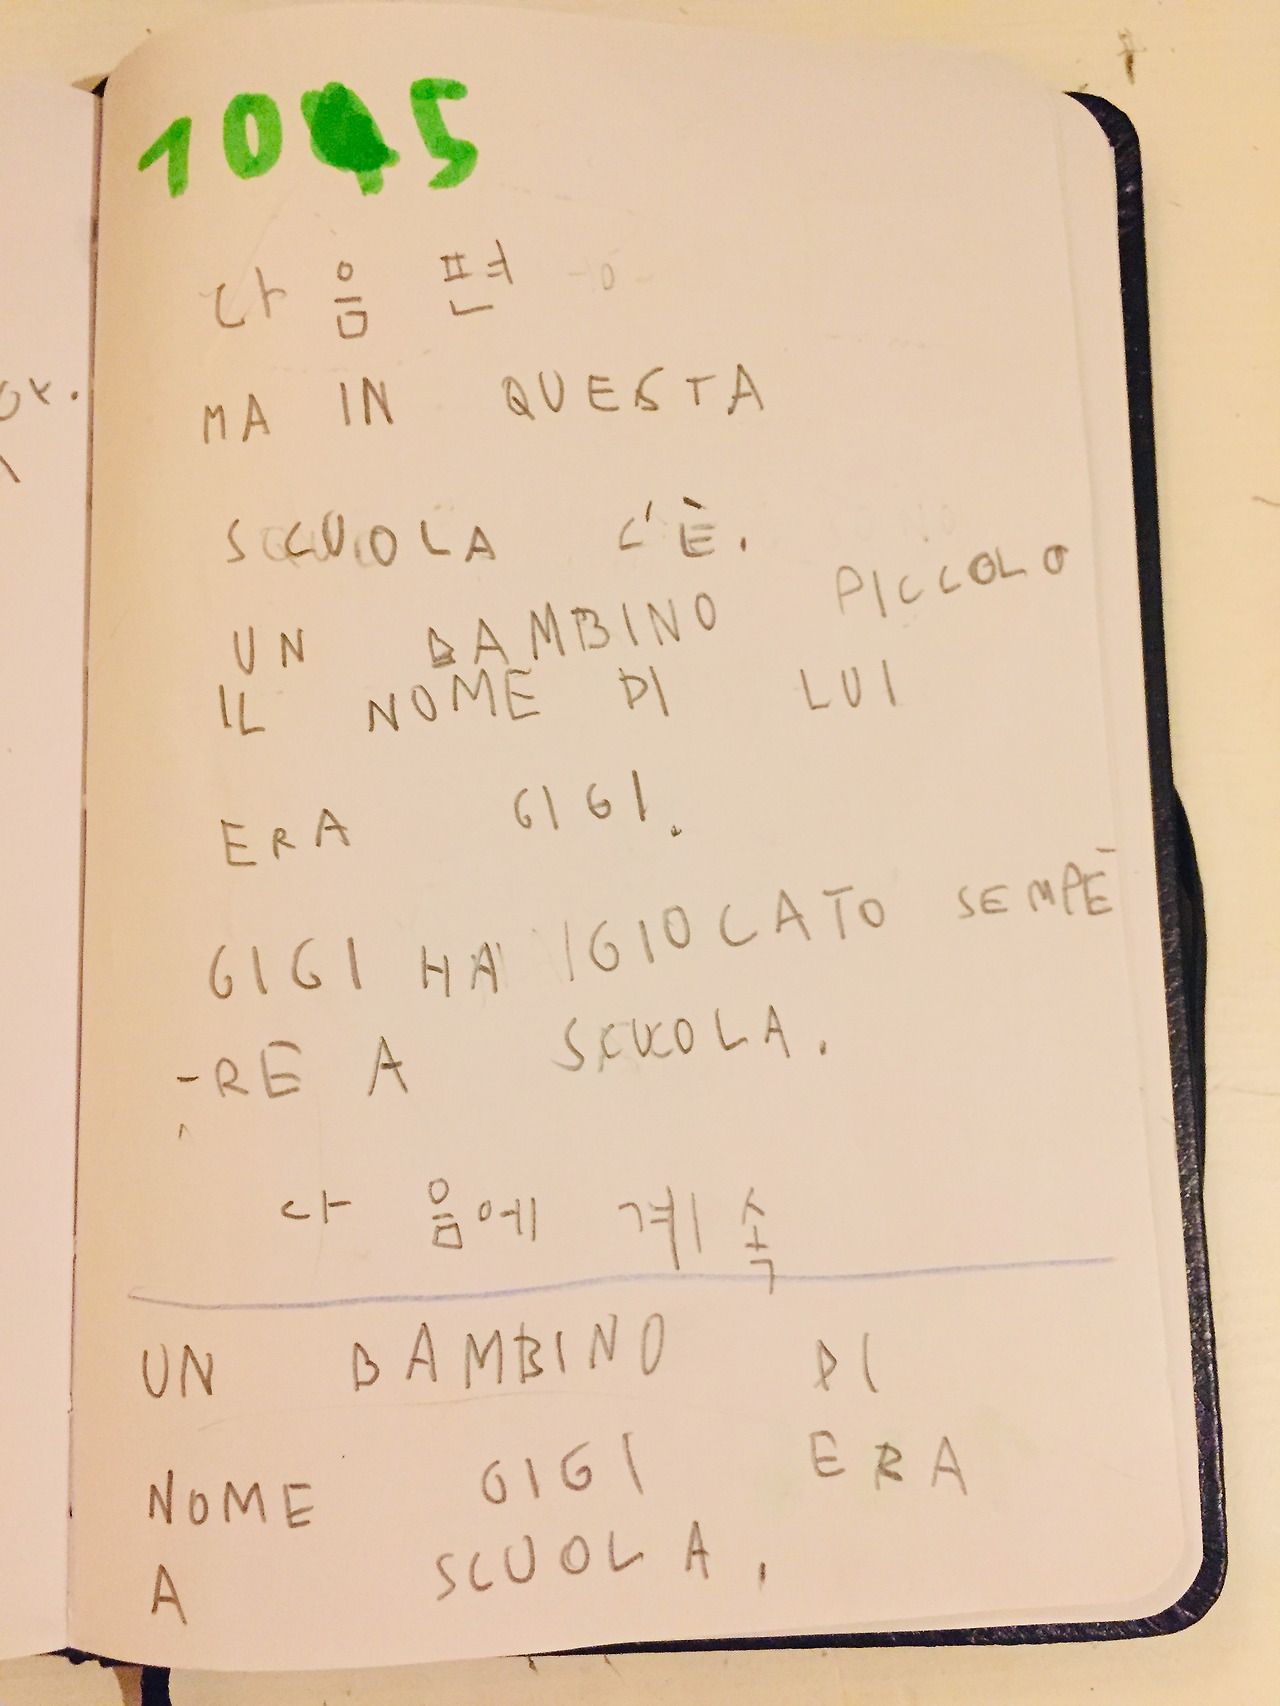 1045
다음 편
MA IN QUESTA
SCUOLA C'È.
UN BAMBINO PICCOLO
IL NOME DI LUI
ERA GIGI.
GIGI HA GIOCATO SEMPE-
-RE A SCUOLA.
다음에 계속
UN BAMBINO DI
NOME GIGI ERA
A SCUOLA.